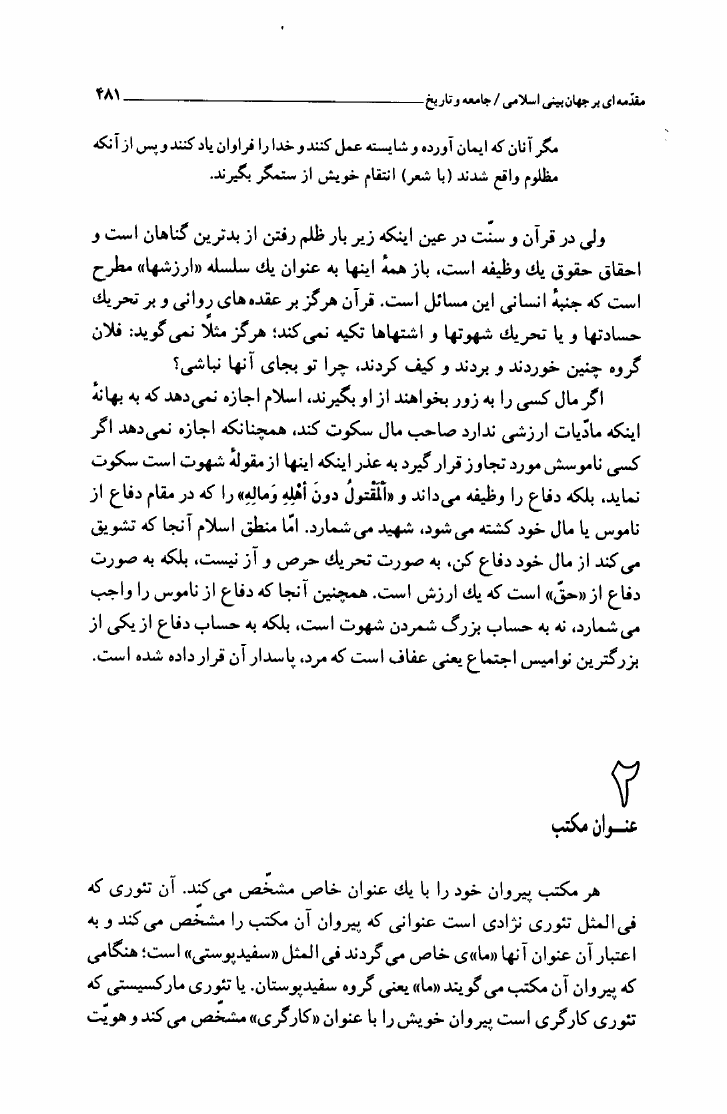 مقدّمه‌ای بر جهان‌بینی اسلامی / جامعه و تاریخ ۴۸۱
مگر آنان که ایمان آورده و شایسته عمل کنند و خدا را فراوان یاد کنند و پس از آنکه
مظلوم واقع شدند (با شعر) انتقام خویش از ستمگر بگیرند.
ولی در قرآن و سنّت در عین اینکه زیر بار ظلم رفتن از بدترین گناهان است و
احقاق حقوق یك وظیفه است، باز همهٔ اینها به عنوان یك سلسله «ارزشها» مطرح
است که جنبهٔ انسانی این مسائل است. قرآن هرگز بر عقده‌های روانی و بر تحریك
حسادتها و یا تحریك شهوتها و اشتهاها تکیه نمی‌کند؛ هرگز مثلاً نمی‌گوید: فلان
گروه چنین خوردند و بردند و کیف کردند، چرا تو بجای آنها نباشی؟
اگر مال کسی را به زور بخواهند از او بگیرند، اسلام اجازه نمی‌دهد که به بهانهٔ
اینکه مادّیات ارزشی ندارد صاحب مال سکوت کند، همچنانکه اجازه نمی‌دهد اگر
کسی ناموسش مورد تجاوز قرار گیرد به عذر اینکه اینها از مقولهٔ شهوت است سکوت
نماید، بلکه دفاع را وظیفه می‌داند و «اَلْمَقْتولُ دونَ أَهْلِهِ وَمالِهِ» را که در مقام دفاع از
ناموس یا مال خود کشته می‌شود، شهید می‌شمارد. امّا منطق اسلام آنجا که تشویق
می‌کند از مال خود دفاع کن، به صورت تحریك حرص و آز نیست، بلکه به صورت
دفاع از «حقّ» است که یك ارزش است. همچنین آنجا که دفاع از ناموس را واجب
می‌شمارد، نه به حساب بزرگ شمردن شهوت است، بلکه به حساب دفاع از یکی از
بزرگترین نوامیس اجتماع یعنی عفاف است که مرد، پاسدار آن قرار داده شده است.
۲
عنـوان مکتب
هر مکتب پیروان خود را با یك عنوان خاص مشخّص می‌کند. آن تئوری که
فی‌المثل تئوری نژادی است عنوانی که پیروان آن مکتب را مشخّص می‌کند و به
اعتبار آن عنوان آنها «ما»ی خاص می‌گردند فی‌المثل «سفیدپوستی» است؛ هنگامی
که پیروان آن مکتب می‌گویند «ما» یعنی گروه سفیدپوستان. یا تئوری مارکسیستی که
تئوری کارگری است پیروان خویش را با عنوان «کارگری» مشخّص می‌کند و هویّت